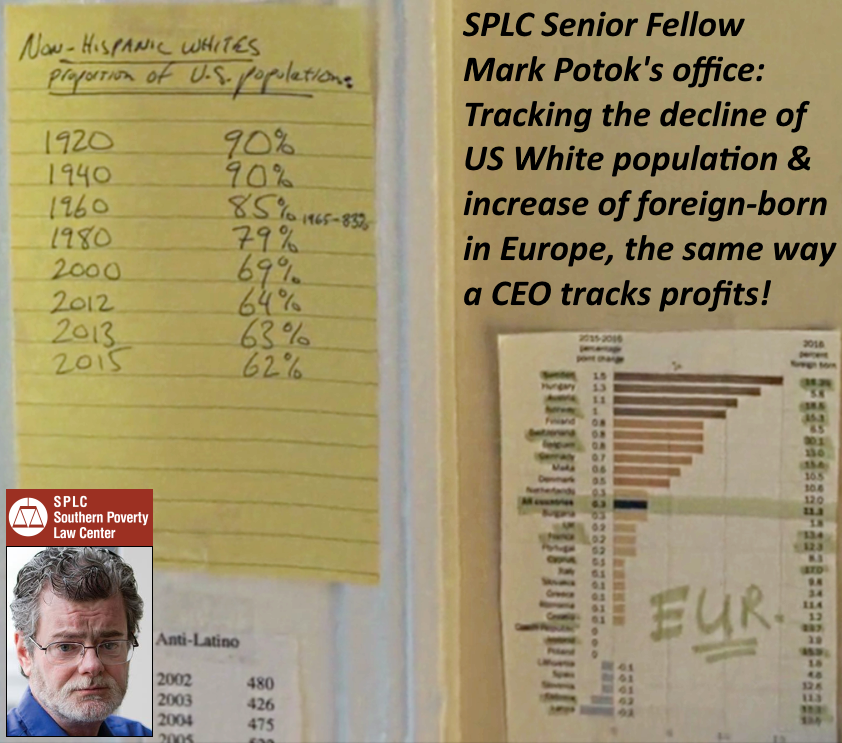 SPLC Senior Fellow
Mark Potok's office:
Tracking the decline of
US White population &
increase of foreign-born
in Europe, the same way
a CEO tracks profits!
NON-HISPANIC WHITES
proportion of U.S. population:
1920 90%
1940 90%
1960 85% 1965-83%
1980 79%
2000 69%
2012 64%
2013 63%
2015 62%
SPLC
Southern Poverty
Law Center
Anti-Latino
2002 480
2003 426
2004 475
2005
2015-2016
percentage
point change
2016
percent
foreign born
Sweden 1.5
Hungary 1.3 5.8
Austria 1.1
Norway 1 15.3
Finland 0.8 6.5
Switzerland 0.8
Belgium 0.8
Germany 0.7
Malta 0.6 10.5
Denmark 0.5 10.6
Netherlands 0.3 12.0
All countries 0.3 11.3
Bulgaria 0.3 1.8
UK 0.2
France 0.2
Portugal 0.2
Cyprus 0.1
Italy 0.1
Slovakia 0.1
Greece 0.1
Romania 0.1
Croatia 0.1
Czech Republic 0
Ireland 0
Poland 0
Lithuania -0.1
Spain -0.1
Slovenia -0.1
Estonia -0.2
Latvia -0.2
EUR.